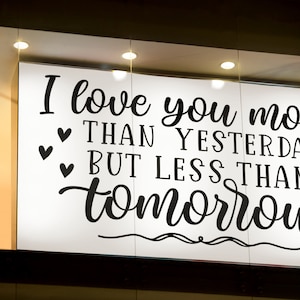 I love you mo
THAN YESTERDA
BUT LESS THAN
tomorrow